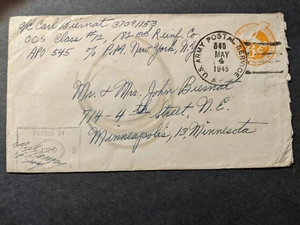 O/C Carl Biernat 37091153
OCS Class #12, 182nd Reinf. Co.
APO 545 c/o P.M. New York, N.Y.
U.S. ARMY POSTAL SERVICE
545
MAY
4
1945
A.P.O.
Mr. & Mrs. John Biernat
714-4th Street, N.E.
Minneapolis, 13. Minnesota
PASSED BY